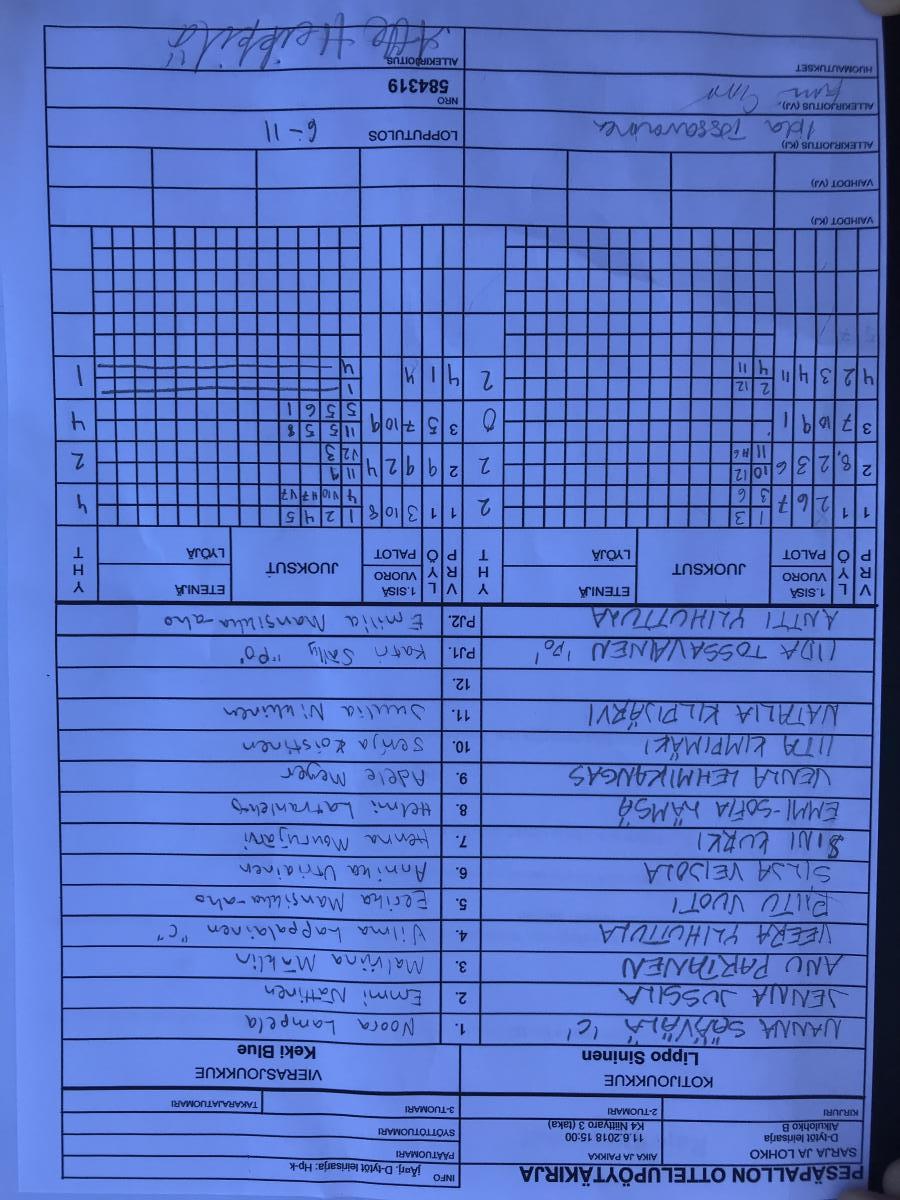 PESÄPALLON OTTELUPÖYTÄKIRJA
INFO
jÄarj. D-tytöt leirisarja: Hp-k
SARJA JA LOHKO
D-tytöt leirisarja
Alkulohko B
AIKA JA PAIKKA
11.6.2018 15:00
K4 Niittyaro 3 (taka)
PÄÄTUOMARI
SYÖTTÖTUOMARI
KIRJURI
2-TUOMARI
3-TUOMARI
TAKARAJATUOMARI
KOTIJOUKKUE
Lippo Sininen
VIERASJOUKKUE
Keki Blue
NANNA SÄÄVÄLÄ 'C' 1. Noora Lampela
JENNA JUSSILA 2. Emmi Nättinen
ANU PARTANEN 3. Malviina Mäklin
VEERA YLIHUTTULA 4. Vilma Lappalainen "C"
RIITU VUOTI 5. Eerika Mansikka-aho
SILJA VEIJOLA 6. Annika Utriainen
SINI KURKI 7. Henna Mourujärvi
EMMI-SOFIA HÄMSÄ 8. Helmi
VENLA LEHMIKANGAS 9. Adele Meyer
IITA KIMPIMÄKI 10. Senja Koistinen
NATALIA KILPIJÄRVI 11. Juulia Nikkinen
12.
IIDA TOSSAVAINEN 'PO' PJ1. Katri Sälly "PO"
ANTTI YLIHUTTULA PJ2. Emilia Mansikka-aho
V P R L Y Ö 1.SISÄ VUORO PALOT JUOKSUT ETENIJÄ LYÖJÄ Y H T V P R L Y Ö 1.SISÄ VUORO PALOT JUOKSUT ETENIJÄ LYÖJÄ Y H T
1 1 2 6 7 1 3 2 1 1 3 10 8 1 2 4 5 4
3 6 4 V10 H7 V7
2 8, 2 3 6 10 12 2 2 9 9 2 4 11 9 2
11 H6 V2 3
3 7 10 9 1 0 3 5 7 10 9 11 5 5 8 4
5 5 6 1
4 2 3 4 11 2 12 2 4 1 4 1 1
4 11 4
VAIHDOT (KJ)
VAIHDOT (VJ)
ALLEKIRJOITUS (KJ)
Iida Tossavainen
LOPPUTULOS 6-11
ALLEKIRJOITUS (VJ)
NRO
584319
HUOMAUTUKSET
ALLEKIRJOITUS
Heikkilä